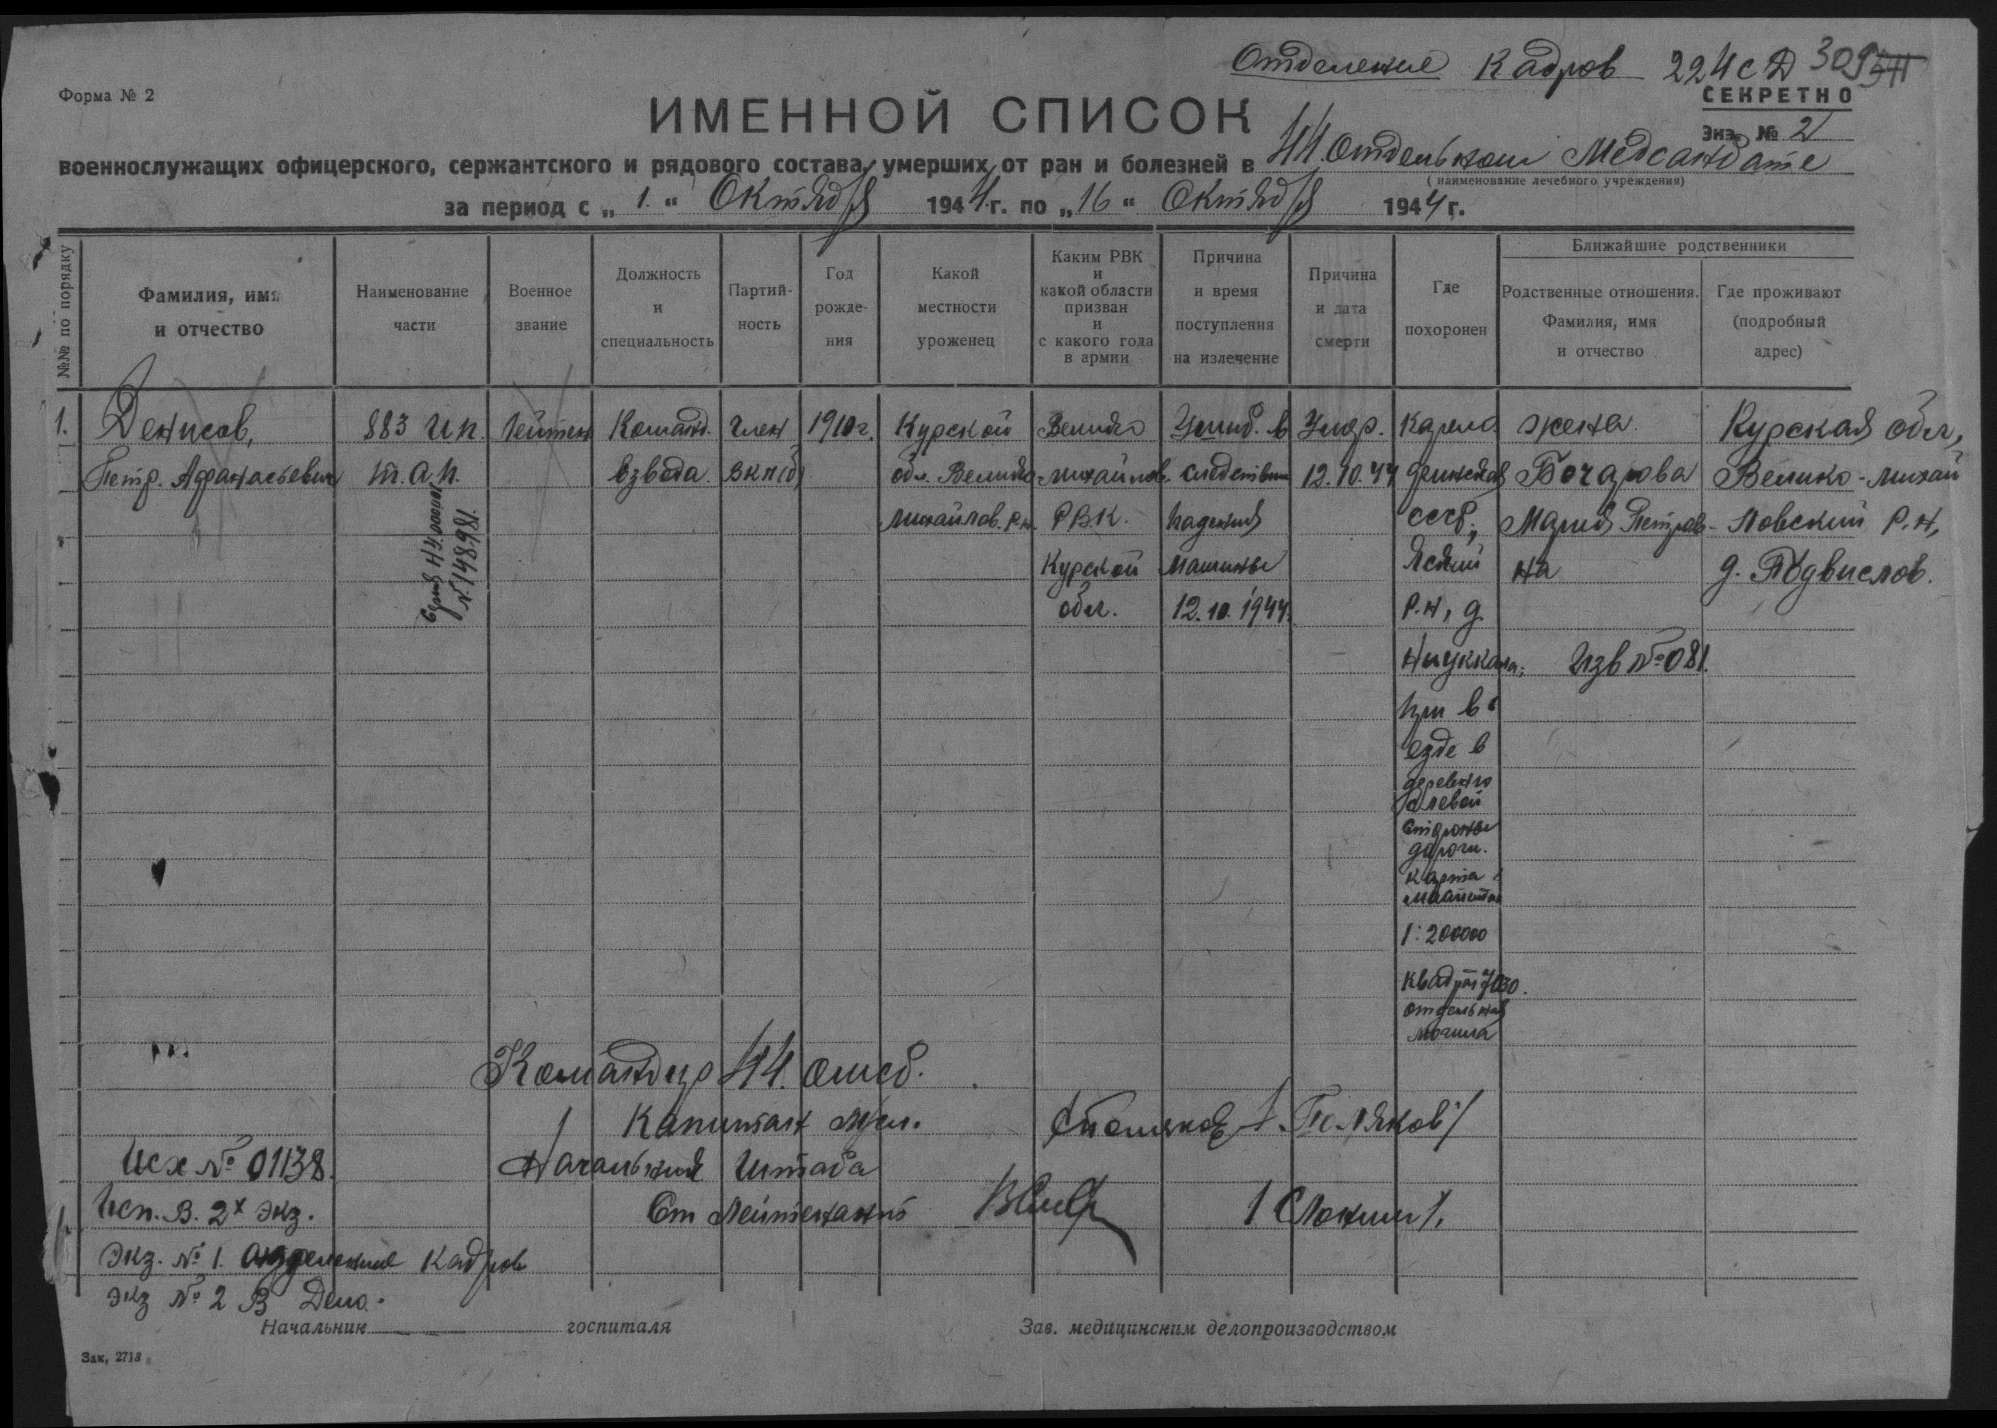 Отделение Кадров 224 сд 309
Форма № 2
СЕКРЕТНО
ИМЕННОЙ СПИСОК
Экз. № 2
военнослужащих офицерского, сержантского и рядового состава, умерших от ран и болезней в 44 Отдельном Медсанбате
(наименование лечебного учреждения)
за период с „ 1. “ Октября 1944 г. по „ 16 “ Октября 1944 г.
№№ по порядку
Фамилия, имя
и отчество
Наименование
части
Военное
звание
Должность
и
специальность
Партий-
ность
Год
рожде-
ния
Какой
местности
уроженец
Каким РВК
и
какой области
призван
и
с какого года
в армии
Причина
и время
поступления
на излечение
Причина
и дата
смерти
Где
похоронен
Ближайшие родственники
Родственные отношения.
Фамилия, имя
и отчество
Где проживают
(подробный
адрес)
1.
Денисов,
Петр. Афанасьевич
883 
т.а.п.
№148981.
Лейтен
Команд.
взвода.
Член
ВКП(б)
1910г.
Курской
обл. Велико
михайлов. р.н.
Велико
михайлов.
РВК.
Курской
обл.
Ушиб. в
следствии
падения
машины
12.10.1944.
Умер.
12.10.44
Карело
финская
ССР,
р.н, д
при в
езде в
деревню
с левой
стороны
дороги.
карта
1:200000
квадрат 7030.
отдельная
могила
жена
Бочарова
Мария Петров-
на
Курская обл,
Велико-михай
ловский р.н,
д. Подвислов.
Изв №081.
Командир 44. омсб.
Капитан м/сл.
/Поляков/
Исх № 01138.
Начальник Штаба
Исп. В. 2х экз.
Ст Лейтенант
/Слоним/.
Экз. № 1. отделение кадров
Экз № 2 В Дело.
Начальник госпиталя
Зав. медицинским делопроизводством
Зак, 2718